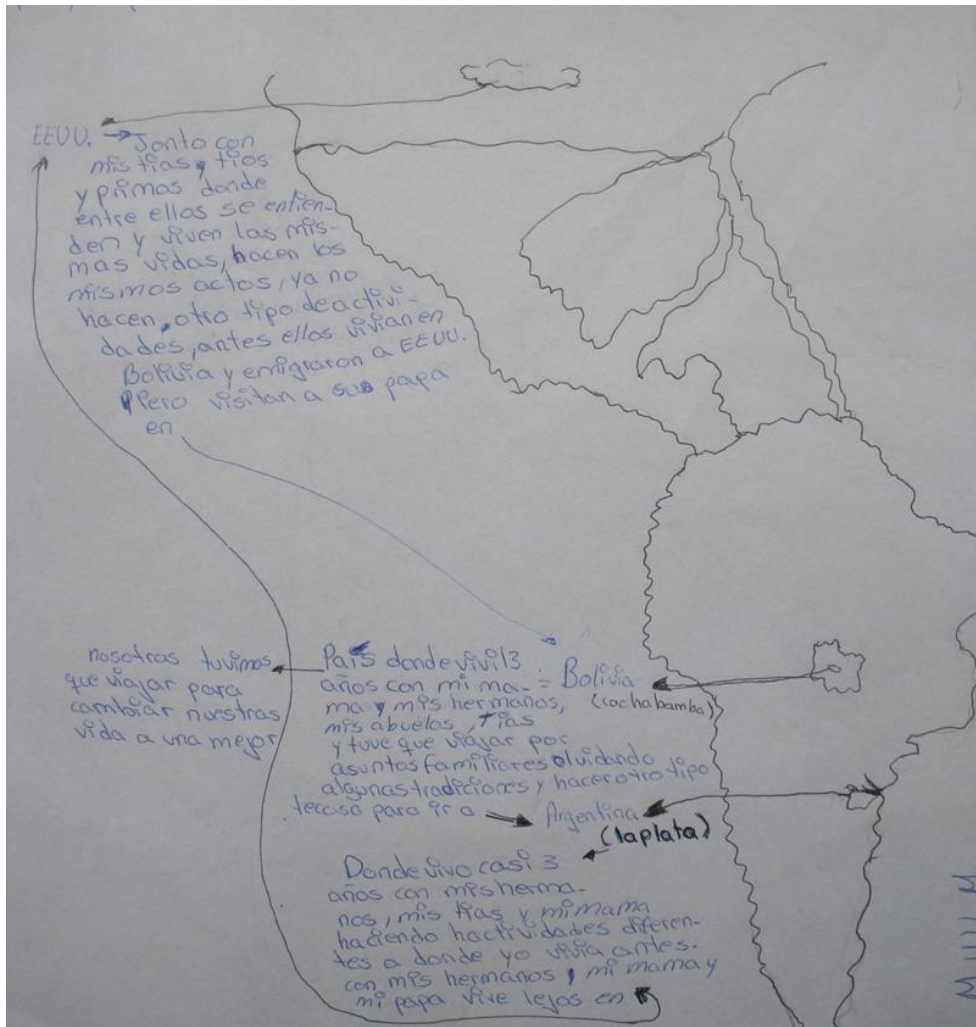 EEUU. → Jonto con
mis tias, tios
y primos donde
entre ellos se entien-
den y viven las mis-
mas vidas, hacen los
mismos actos, ya no
hacen, otro tipo de activi-
dades, antes ellos vivian en
Bolivia y emigraron a EEUU.
Pero visitan a sus papa
en
nosotras tuvimos
que viajar para
cambiar nuestras
vida a una mejor
País donde viví 13
años con mi ma-
ma y mis hermanos,
mis abuelos, tías
y tuve que viajar por
asuntos familiares olvidando
algunas tradiciones y hacer otro tipo
para ir a
= Bolivia
(cochabamba)
Argentina
(la plata)
Donde vivo casi 3
años con mis herma-
nos, mis tias y mi mama
haciendo hactividades diferen-
tes a donde yo vivia antes.
con mis hermanos, mi mama y
mi papa vive lejos en